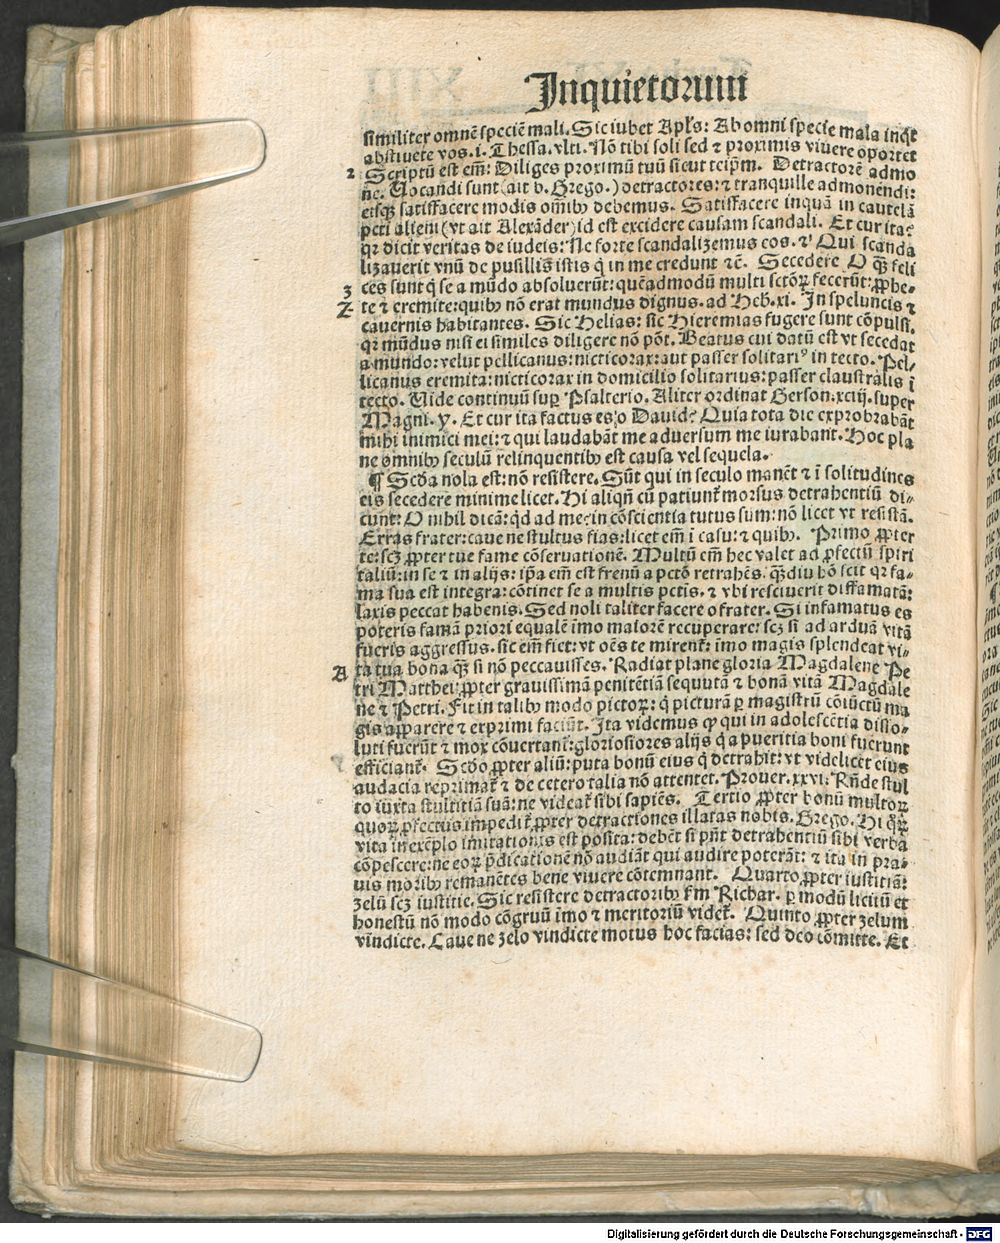 Inquietorum
similiter omnē speciē mali. Sic iubet Apl's: Ab omni specie mala inqͥt
abstinete vos. i. Thessa. vlti. Nō tibi soli sed ⁊ proximis viuere oportet
2 Scriptū est em̄: Diliges proximū tuū sicut teip̄m. Detractorē admo
ne. Vocandi sunt (ait b. Grego.) detractores: ⁊ tranquille admonendi:
eisqꝫ satisfacere modis om̄ibꝰ debemus. Satisfacere inquā in cautelā
pcti alieni (vt ait Alexāder) id est excidere causam scandali. Et cur ita?
qꝛ dicit veritas de iudeis: Ne forte scandalizemus eos. ⁊ꝰ Qui scanda
lizauerit vnū de pusillis istis q̇ in me credunt ⁊c̄. Secedere O qꝫ̄ feli
3 ces sunt q̇ se a mūdo absoluerūt: quēadmodū multi sctōꝝ fecerūt: ꝓphe-
Z te ⁊ eremite: quibꝰ nō erat mundus dignus. ad Heb. xi. In speluncis ⁊
cauernis habitantes. Sic Helias: sic Hieremias fugere sunt cōpulsi.
qꝛ mūdus nisi ei similes diligere nō pōt. Beatus cui datū est vt secedat
a mundo: velut pellicanus: nicticorax: aut passer solitariꝰ in tecto. Pel-
licanus eremita: nicticorax in domicilio solitarius: passer claustralis ī
tecto. Vide continuū suꝑ Psalterio. Aliter ordinat Gerson. xciij. super
Magni. y. Et cur ita factus es o Dauid? Quia tota die exprobrabāt
mihi inimici mei: ⁊ qui laudabāt me aduersum me iurabant. Hoc pla
ne omnibꝰ seculū relinquentibꝰ est causa vel sequela.
¶ Scd̄a nola est: nō resistere. Sūt qui in seculo manēt ⁊ ī solitudines
eis secedere minime licet. Hi aliqn̄ cū patiunt̄ morsus detrahentiū di-
cunt: O nihil dicā: qd̄ ad me: in cōscientia tutus sum: nō licet vt resistā.
Erras frater: caue ne stultus fias: licet em̄ ī casu: ⁊ quibꝰ. Primo ꝓpter
te: scꝫ ꝓpter tue fame cōseruationē. Multū em̄ hec valet ad ꝓfectū spiri
taliū: in se ⁊ in alijs: ip̄a em̄ est frenū a pctō retrahēs. qꝫ̄diu hō scit qꝛ fa-
ma sua est integra: cōtinet se a multis pctis. ⁊ vbi resciuerit diffamatā:
laxis peccat habenis. Sed noli taliter facere o frater. Si infamatus es
poteris famā priori equalē imo maiorē recuperare: scꝫ si ad arduā vitā
fueris aggressus. sic em̄ fiet: vt oēs te mirent̄: imo magis splendeat vi-
A ta tua bona qꝫ̄ si nō peccauisses. Radiat plane gloria Magdalene Pe
tri Matthei: ꝓpter grauissimā penitētiā sequutā ⁊ bonā vitā Magdale
ne ⁊ Petri. Fit in talibꝰ modo pictoꝝ: q̇ picturā ꝑ magistrū cōiūctū ma
gis apparere ⁊ exprimi faciūt. Ita videmus ꝙ qui in adolescētia disso-
luti fuerūt ⁊ mox cōuertant̄: gloriosiores alijs q̇ a pueritia boni fuerunt
efficiant̄. Scdo ꝓpter aliū: puta bonū eius q̇ detrahit: vt videlicet eius
audacia reprimat̄ ⁊ de cetero talia nō attentet. Prouer. xxvi. Rn̄de stul
to iuxta stultitiā suā: ne videat̄ sibi sapiēs. Tertio ꝓpter bonū multoꝝ
quoꝝ ꝓfectus impedit̄ ꝓpter detractiones illatas nobis. Grego. Hi qͦꝝ
vita in exēplo imitationis est posita: debēt si pn̄t detrahentiū sibi verba
cōpescere: ne eoꝝ p̄dicationē nō audiāt qui audire poterāt: ⁊ ita in pra-
uis moribꝰ remanētes bene viuere cōtemnant. Quarto ꝓpter iustitiā:
zelū scꝫ iustitie. Sic resistere detractoribꝰ fm̄ Richar. ꝑ modū licitū et
honestū nō modo cōgruū imo ⁊ meritoriū videt̄. Quinto ꝓpter zelum
vindicte. Caue ne zelo vindicte motus hoc facias: sed deo cōmitte. Et
Digitalisierung gefördert durch die Deutsche Forschungsgemeinschaft - DFG